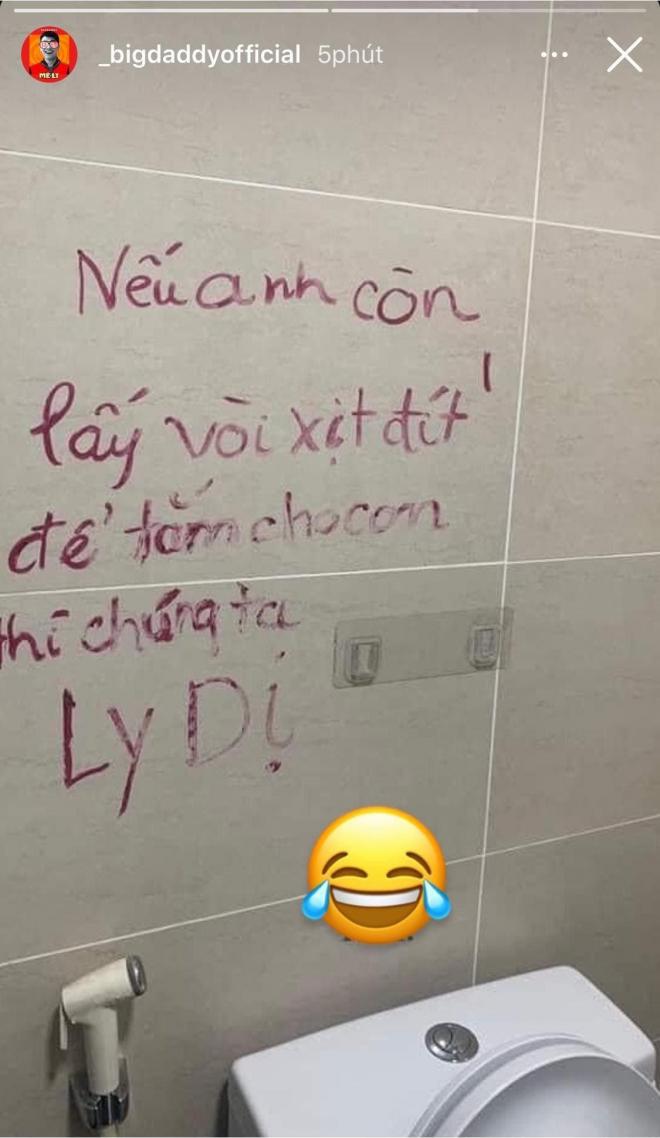 _bigdaddyofficial 5phút
MÊ LY
Nếu anh còn
lấy vòi xịt đít
để tắm cho con
thì chúng ta
Ly Dị